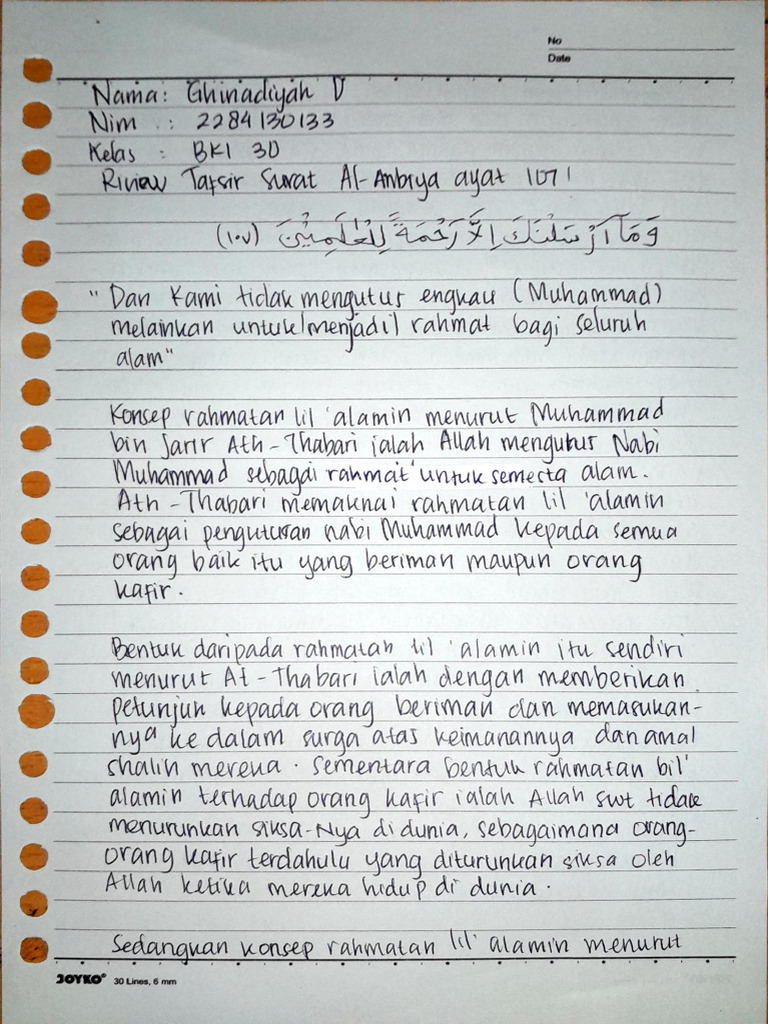 No
Date
Nama: Ghinadiyah D
Nim : 2284130133
Kelas : BKI 3D
Riview Tafsir Surat Al-Anbiya ayat 107
وَمَآ اَرْسَلْنٰكَ اِلَّا رَحْمَةً لِّلْعٰلَمِيْنَ (١٠٧)
"Dan Kami tidak mengutus engkau (Muhammad)
melainkan untuk (menjadi) rahmat bagi seluruh
alam"
Konsep rahmatan lil 'alamin menurut Muhammad
bin Jarir Ath-Thabari ialah Allah mengutus Nabi
Muhammad sebagai rahmat untuk semesta alam.
Ath-Thabari memaknai rahmatan lil 'alamin
sebagai pengutusan nabi Muhammad kepada semua
orang baik itu yang beriman maupun orang
kafir.
Bentuk daripada rahmatan lil 'alamin itu sendiri
menurut At-Thabari ialah dengan memberikan
petunjuk kepada orang beriman dan memasukan-
nya ke dalam surga atas keimanannya dan amal
shalih mereka. Sementara bentuk rahmatan bil'
alamin terhadap orang kafir ialah Allah swt tidak
menurunkan siksa-Nya di dunia, sebagaimana orang-
orang kafir terdahulu yang diturunkan siksa oleh
Allah ketika mereka hidup di dunia.
Sedangkan konsep rahmatan lil' alamin menurut
JOYKO® 30 Lines, 6 mm